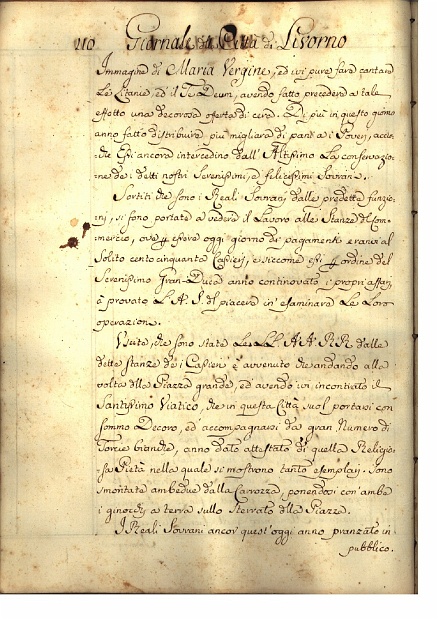 210 Giornale di Città di Livorno
Immagine di Maria Vergine, ed ivi pure fare cantare
Le Litanie, ed il Te Deum, avendo fatto precedere a tale
effetto una decorosa oferta di cere. Di più in questo giorno
anno fatto distribuire più migliara di pani a i Poveri, accio
che Essi ancora intercedino dall'Altissimo La conservazio:
:ne de i detti nostri Serenissimi, e felicissimi Sovrani.
Sortiti che sono i Reali Sovrani dalle predette funzio
:ni, si sono portate a vedere il Lavoro alle Stanze del Com:
:mercio, ove p essere oggi giorno di pagamenti eranvi al
Solito cento cinquanta Cassieri, e siccome essi p ordine del
Serenissimo Gran-Duca anno continovato i propri affari
à provato L. A. S. del piacere in esaminare Le Loro
operazione.
Uscite che sono state Le LL. AA. RR. dalle
dette stanze de i Cassieri è avvenuto che andando alla
volta della Piazza grande, ed avendo ivi incontrato il
Santissimo Viatico, che in questa Città suol portarsi con
sommo Decoro, ed accompagnarsi da gran Numero di
Torcie bianche, anno dato attestato di quella Religio:
:sa Pietà nella quale si mostrono tanto esemplari. Sono
smontate ambedue dalla Carrozza, ponendosi con ambe
i ginocchi a terra sullo sterrato della Piazza.
I Reali Sovrani ancor quest'oggi anno pranzato in
pubblico.